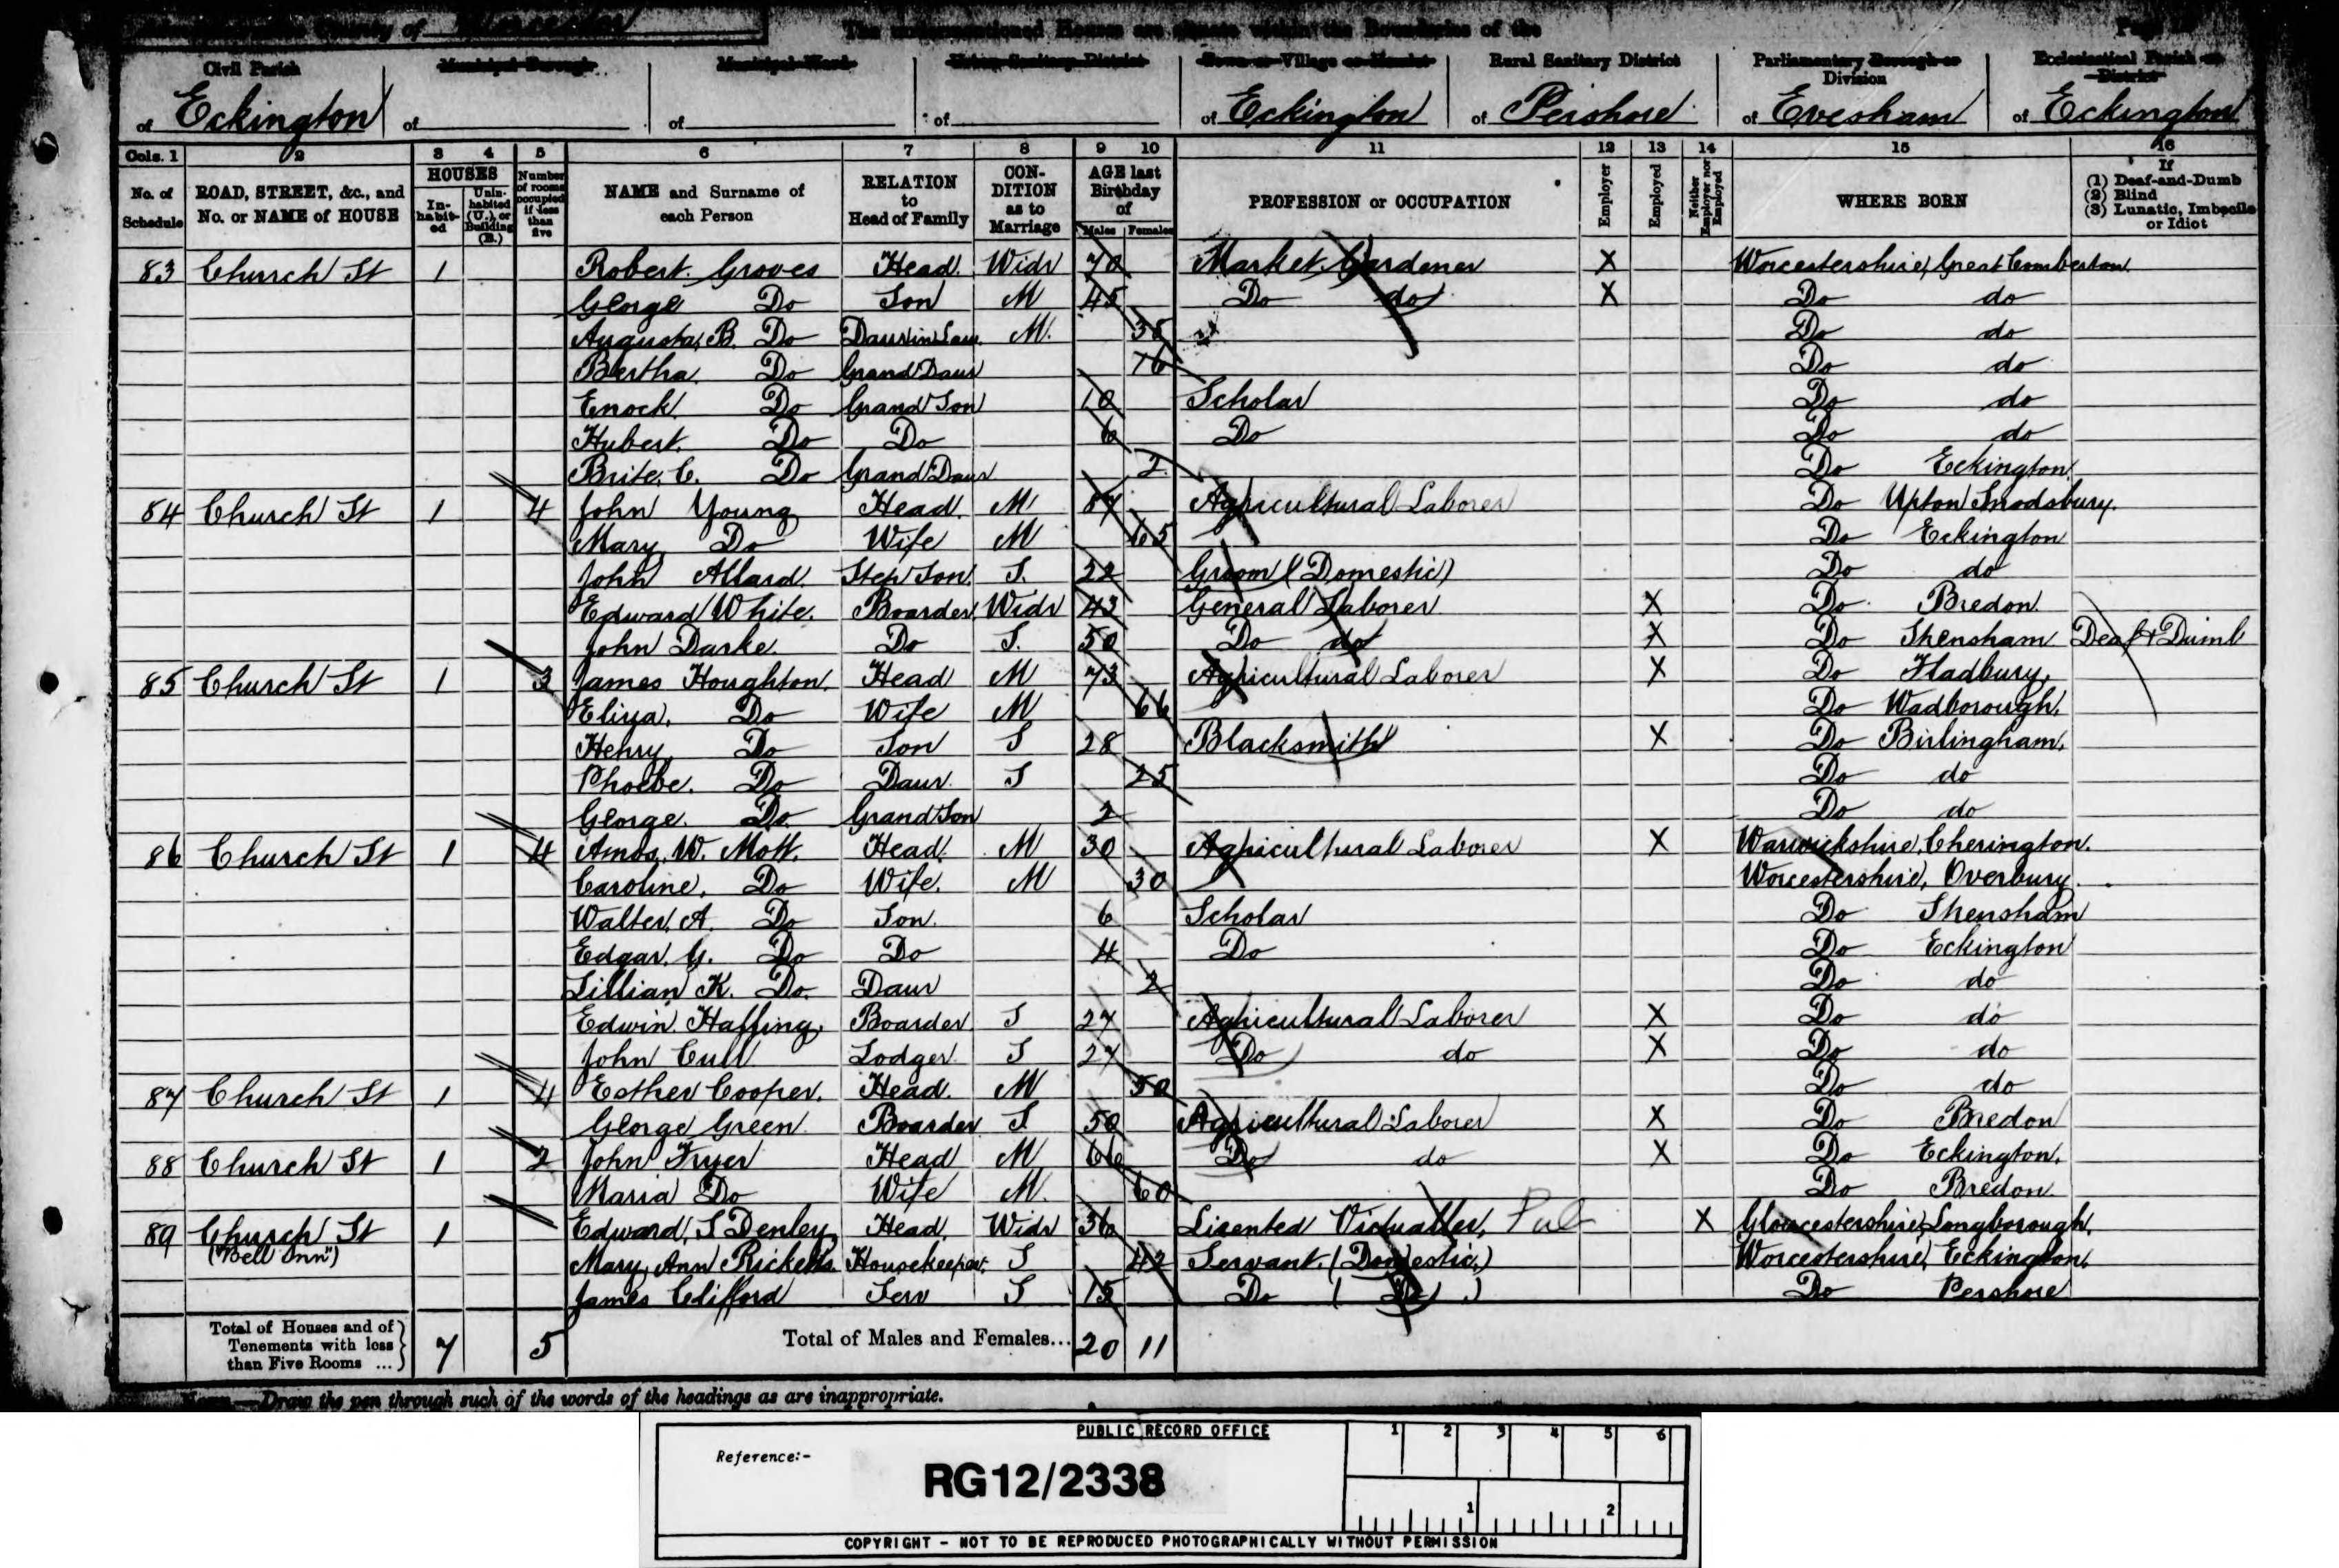 County of Worcester
The undermentioned Houses are situate within the Boundaries of the
Civil Parish
Municipal Borough
Municipal Ward
Urban Sanitary District
Town or Village or Hamlet
Rural Sanitary District
Parliamentary Borough or Division
Ecclesiastical Parish or District
of Eckington of of of of Eckington of Pershore of Evesham of Eckington
Cols. 1 2 3 4 5 6 7 8 9 10 11 12 13 14 15 16
No. of Schedule
ROAD, STREET, &c., and No. or NAME of HOUSE
HOUSES
In-habit-ed
Unin-habited (U.), or Building (B.)
Number of rooms occupied if less than five
NAME and Surname of each Person
RELATION to Head of Family
CON-DITION as to Marriage
AGE last Birthday of
Males Females
PROFESSION or OCCUPATION
Employer
Employed
Neither Employer nor Employed
WHERE BORN
If
(1) Deaf-and-Dumb
(2) Blind
(3) Lunatic, Imbecile or Idiot
83 Church St 1 Robert Groves Head Widr 70 Market Gardener X Worcestershire, Great Comberton
George Do Son M 45 Do do X Do do
Augusta B. Do Daur in Law M. 35 Do do
Bertha Do Grand Daur 16 Do do
Enock Do Grand Son 10 Scholar Do do
Hubert Do Do 6 Do Do do
Brite. C. Do Grand Daur 2 Do Eckington
84 Church St 1 4 John Young Head M Agricultural Laborer Do Upton Snodsbury.
Mary Do Wife M 65 Do Eckington
John Allard Step Son S. 22 Groom (Domestic) Do do
Edward White Boarder Widr 43 General Laborer X Do Bredon
John Darke Do S. 50 Do do X Do Shensham Deaf & Dumb
85 Church St 1 3 James Houghton Head M 73 Agricultural Laborer X Do Fladbury,
Eliza Do Wife M 66 Do Wadborough,
Henry Do Son S 28 Blacksmith X Do Birlingham,
Phoebe. Do Daur S 25 Do do
George. Do Grand Son 2 Do do
86 Church St 1 4 Amos. W. Mott. Head M 30 Agricultural Laborer X Warwickshire, Cherington.
Caroline. Do Wife. M 30 Worcestershire, Overbury
Walter. A. Do Son 6 Scholar Do Shensham
Edgar. G. Do Do 4 Do Do Eckington
Lillian K. Do Daur 2 Do do
Edwin Halling Boarder S 27 Agricultural Laborer X Do do
John Cull Lodger S 27 Do do X Do do
87 Church St 1 4 Esther Cooper. Head M 50 Do do
George Green Boarder S 50 Agricultural Laborer X Do Bredon
88 Church St 1 2 John Fryer Head M 66 Do do X Do Eckington.
Maria Do Wife M. 60 Do Bredon
89 Church St 1 Edward. S Denley Head. Widr 36 Licented Victualler, Pub X Gloucestershire, Longborough.
("Bell Inn") Mary Ann Ricketts Housekeeper S 42 Servant. (Domestic.) Worcestershire, Eckington.
James Clifford Serv S 15 Do ( Do ) Do Pershore
Total of Houses and of Tenements with less than Five Rooms ... 7 5 Total of Males and Females... 20 11
NOTE.—Draw the pen through such of the words of the headings as are inappropriate.
PUBLIC RECORD OFFICE 1 2 3 4 5 6
Reference:-
RG12/2338
1 2
COPYRIGHT - NOT TO BE REPRODUCED PHOTOGRAPHICALLY WITHOUT PERMISSION